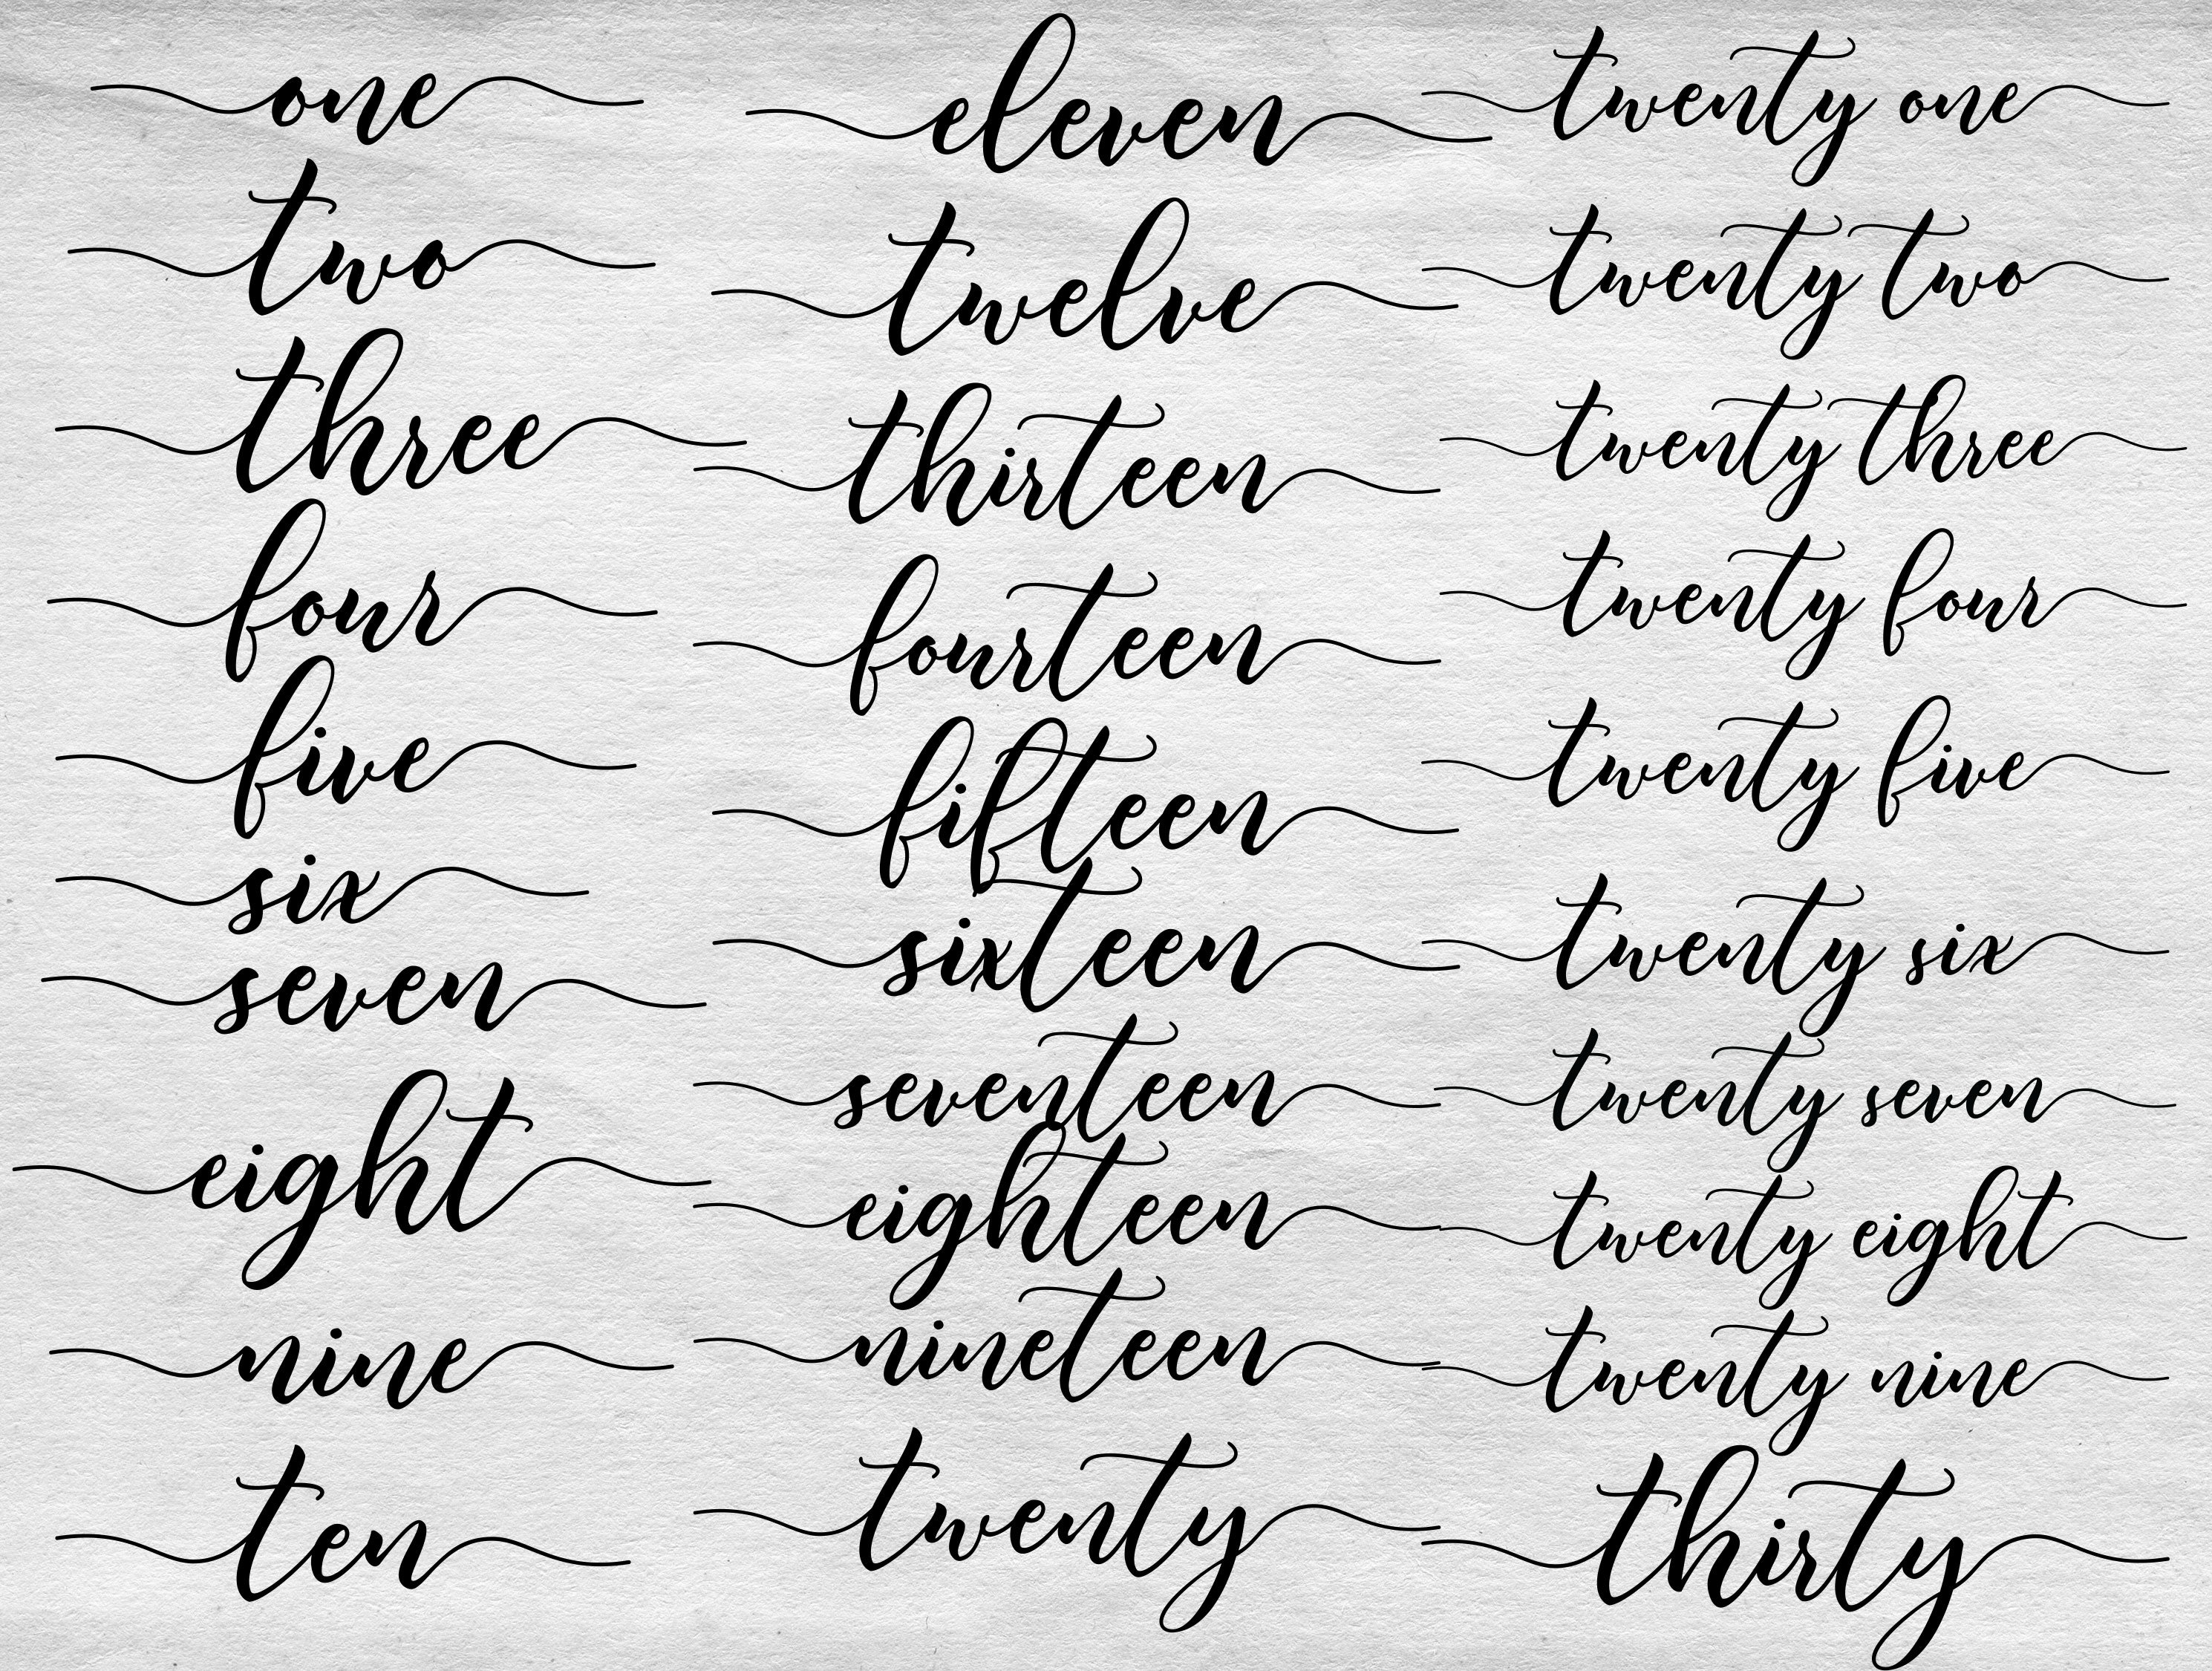 one
two
three
four
five
six
seven
eight
nine
ten
eleven
twelve
thirteen
fourteen
fifteen
sixteen
seventeen
eighteen
nineteen
twenty
twenty one
twenty two
twenty three
twenty four
twenty five
twenty six
twenty seven
twenty eight
twenty nine
thirty